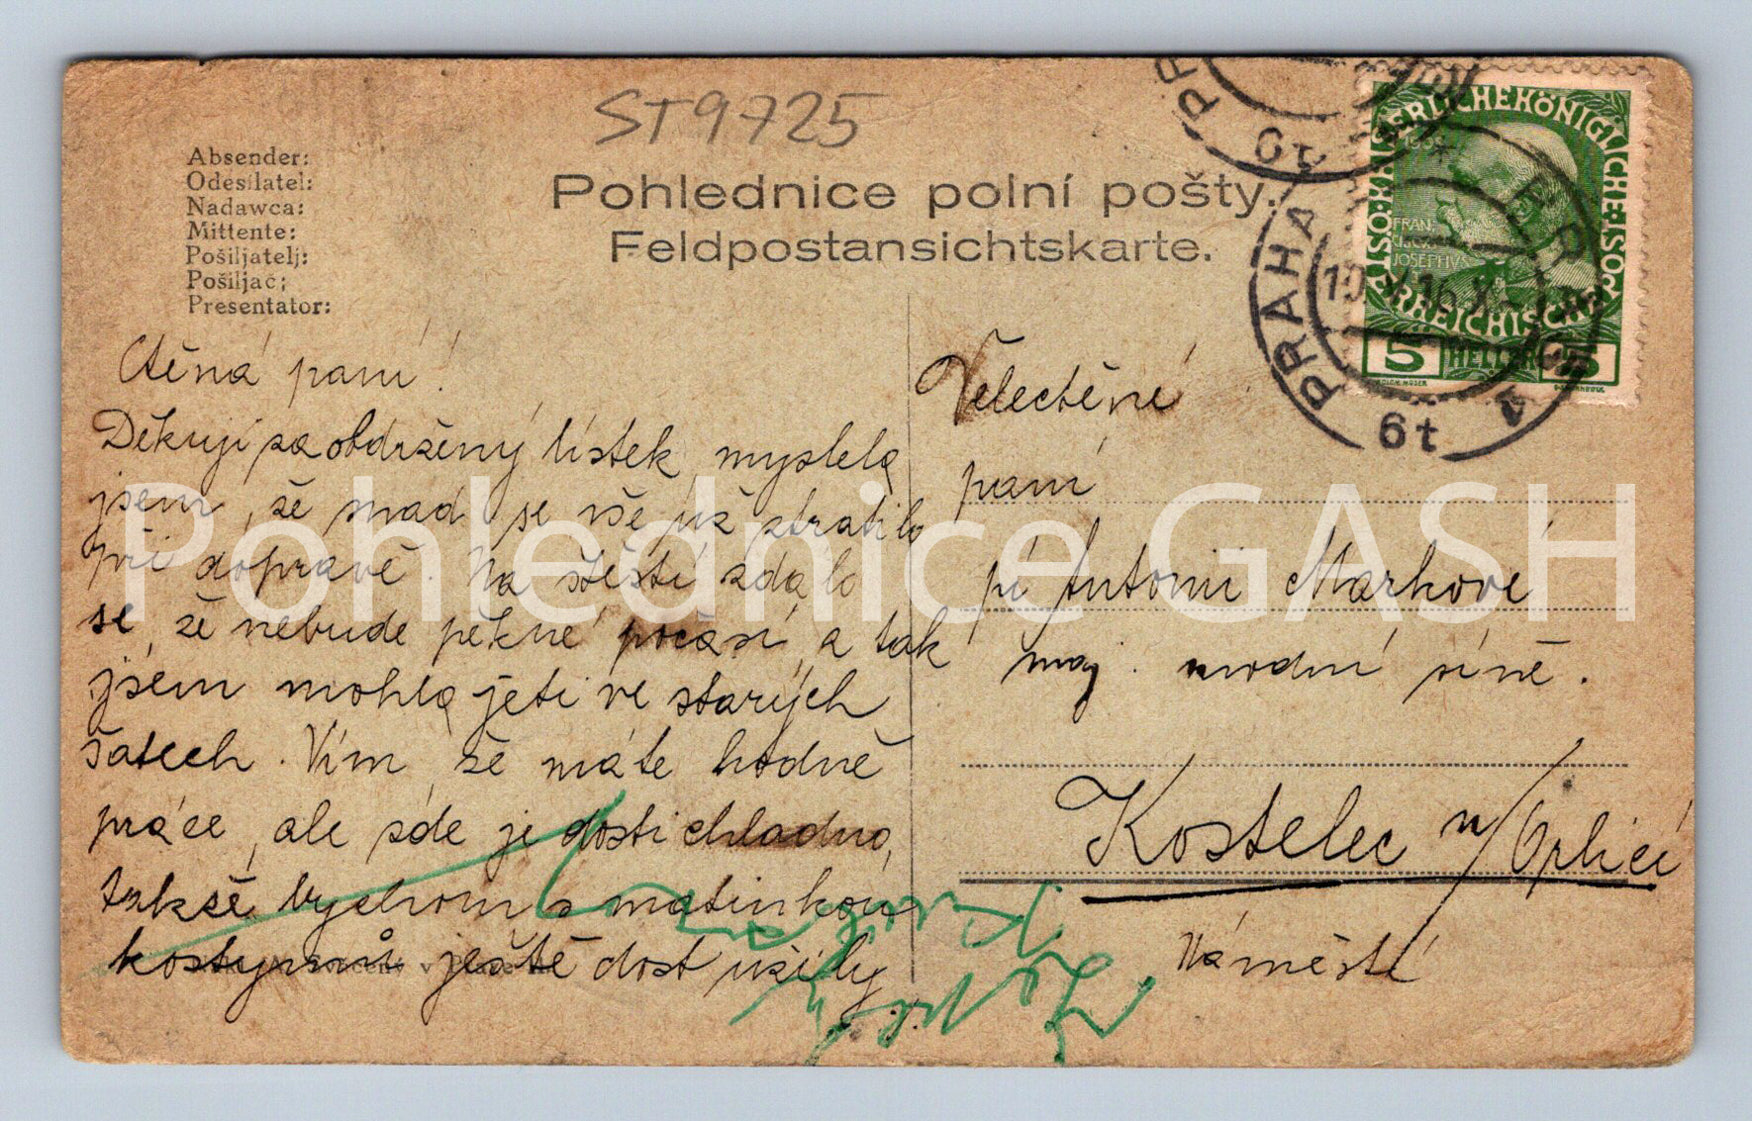 ST9725
Absender:
Odesílatel:
Nadawca:
Mittente:
Pošiljatelj:
Pošiljač;
Presentator:
Pohlednice polní pošty.
Feldpostansichtskarte.
KAISERLICHE KÖNIGLICHE
ÖSTERREICHISCHE
1908
FRAN
JOSEPHVS
5 HELLER 5
PRAHA
PRAG
6t
Ctěná paní!
Děkuji za obdržený lístek myslela
jsem, že snad se vše už ztratilo
při dopravě. Na štěstí zdálo
se, že nebude pěkné počasí, a tak
jsem mohla jeti ve starých
šatech. Vím, že máte hodně
práce, ale zde je dosti chladno,
takže bychom s matinkou
kostymů ještě dost užily
Velectěné
paní
pí Antonii Markové
maj. modní síně.
Kostelec n/Orlicí
Náměstí
Pohlednice GASH